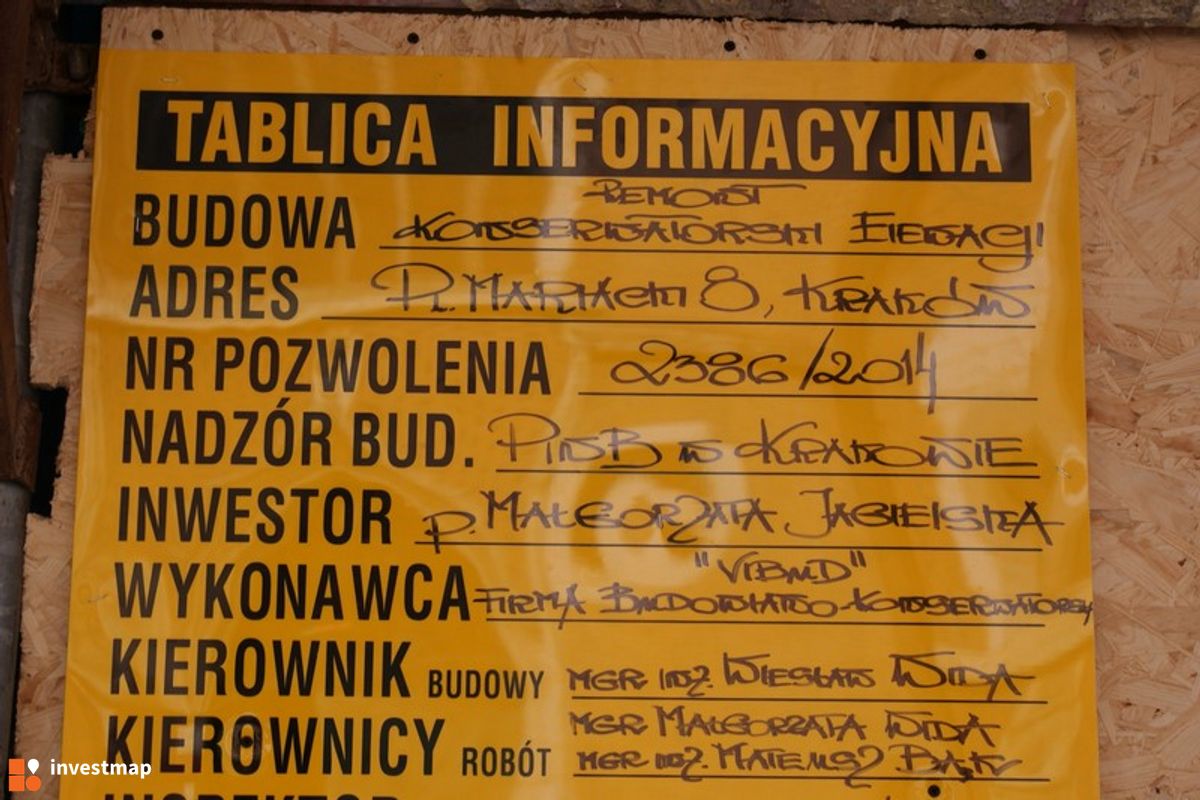 TABLICA INFORMACYJNA
REMONT
BUDOWA KONSERWATORSKI ELEWACJI
ADRES Pl. MARIACKI 8, KRAKÓW
NR POZWOLENIA 2386/2014
NADZÓR BUD. PINB w KRAKOWIE
INWESTOR P. MAŁGORZATA JAGIELSKA
"VIBUD"
WYKONAWCA FIRMA BUDOWLANO-KONSERWATORSK
KIEROWNIK BUDOWY MGR INŻ. WIESŁAW WIDA
KIEROWNICY ROBÓT MGR MAŁGORZATA WIDA
MGR INŻ. MATEUSZ BĄK
INSPEKTOR
investmap